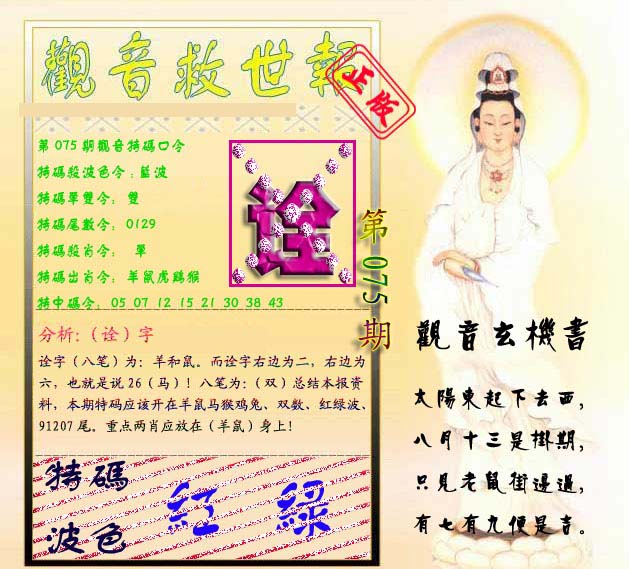 觀音救世報
正版
第075期觀音特碼口令
特碼殺波色令：藍波
特碼單雙令： 雙
特碼尾數令： 0129
特碼殺肖令： 單
特碼出肖令： 羊鼠虎鷄猴
特中碼令： 05 07 12 15 21 30 38 43
诠
第075期
分析:（诠）字
诠字（八笔）为：羊和鼠。而诠字右边为二，右边为
六，也就是说26（马）！八笔为：（双）总结本报资
料，本期特码应该开在羊鼠马猴鸡兔、双数、红绿波、
91207尾。重点两肖应放在（羊鼠）身上！
特碼
波色
紅 綠
觀音玄機書
太陽東起下去西，
八月十三是掛期，
只見老鼠街邊過，
有七有九便是吉。